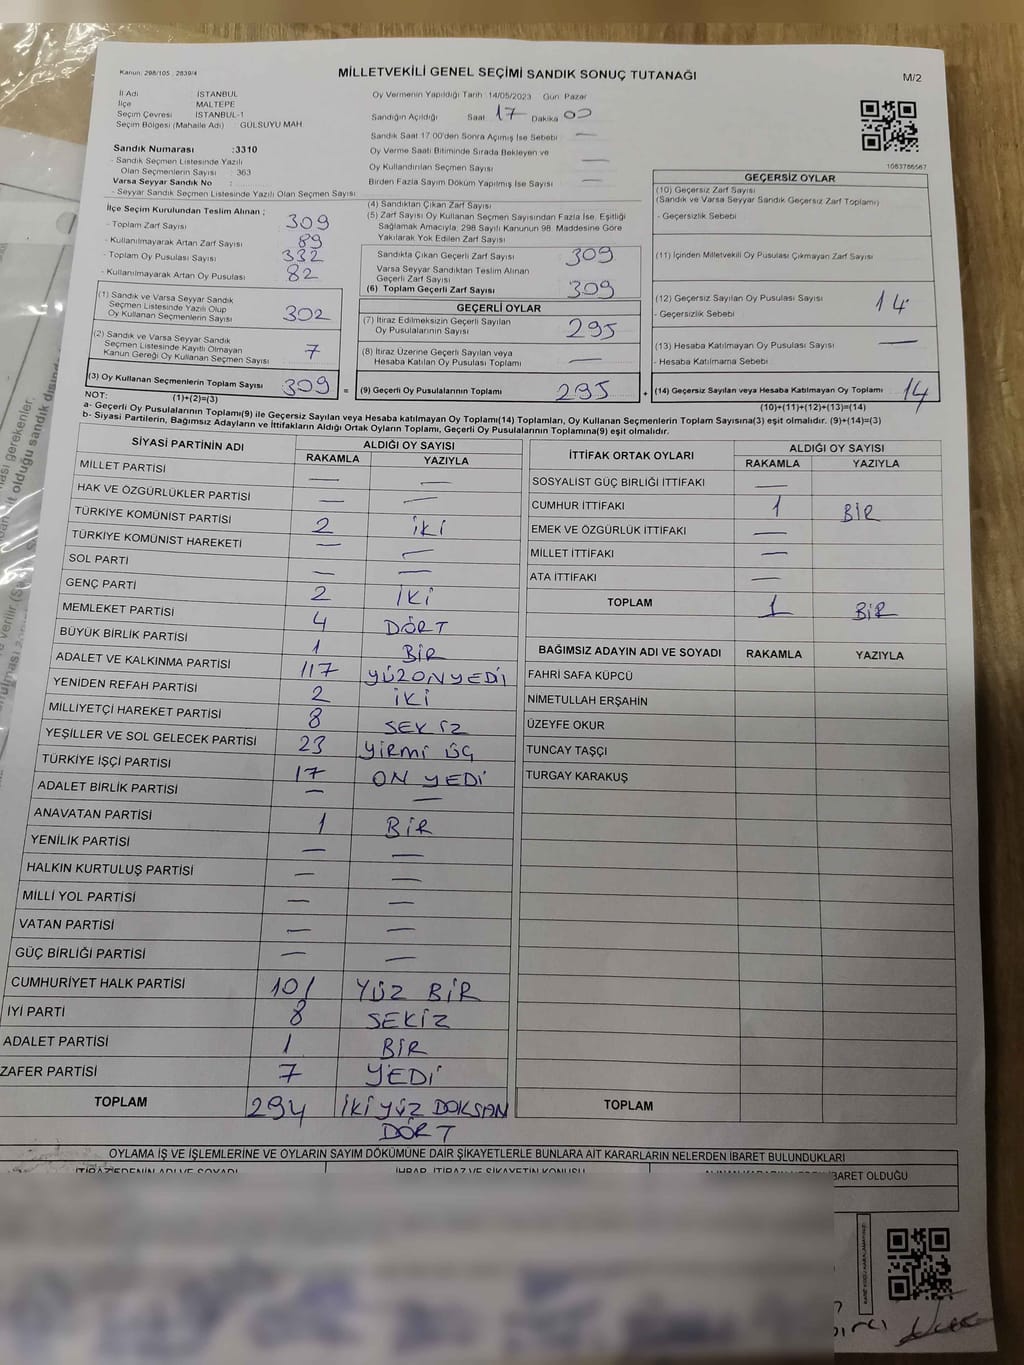 Kanun: 298/105 , 2839/4
MİLLETVEKİLİ GENEL SEÇİMİ SANDIK SONUÇ TUTANAĞI
M/2
İl Adı : İSTANBUL
İlçe MALTEPE
Seçim Çevresi : İSTANBUL-1
Seçim Bölgesi (Mahalle Adı) : GÜLSUYU MAH.
Oy Vermenin Yapıldığı Tarih : 14/05/2023 Gün: Pazar
Sandığın Açıldığı Saat 17 Dakika 00
Sandık Saat 17.00'den Sonra Açımış İse Sebebi —
Oy Verme Saati Bitiminde Sırada Bekleyen ve
Oy Kullandırılan Seçmen Sayısı —
Birden Fazla Sayım Döküm Yapılmış İse Sayısı —
1083786567
Sandık Numarası :3310
- Sandık Seçmen Listesinde Yazılı
Olan Seçmenlerin Sayısı : 363
Varsa Seyyar Sandık No :
- Seyyar Sandık Seçmen Listesinde Yazılı Olan Seçmen Sayısı :
İlçe Seçim Kurulundan Teslim Alınan ;
- Toplam Zarf Sayısı 309
- Kullanılmayarak Artan Zarf Sayısı 89
- Toplam Oy Pusulası Sayısı 332
- Kullanılmayarak Artan Oy Pusulası 82
(1) Sandık ve Varsa Seyyar Sandık
Seçmen Listesinde Yazılı Olup
Oy Kullanan Seçmenlerin Sayısı 302
(2) Sandık ve Varsa Seyyar Sandık
Seçmen Listesinde Kayıtlı Olmayan
Kanun Gereği Oy Kullanan Seçmen Sayısı 7
(3) Oy Kullanan Seçmenlerin Toplam Sayısı 309 =
(1)+(2)=(3)
(4) Sandıktan Çıkan Zarf Sayısı
(5) Zarf Sayısı Oy Kullanan Seçmen Sayısından Fazla İse, Eşitliği
Sağlamak Amacıyla, 298 Sayılı Kanunun 98. Maddesine Göre
Yakılarak Yok Edilen Zarf Sayısı
Sandıkta Çıkan Geçerli Zarf Sayısı 309
Varsa Seyyar Sandıktan Teslim Alınan
Geçerli Zarf Sayısı
(6) Toplam Geçerli Zarf Sayısı 309
GEÇERLİ OYLAR
(7) İtiraz Edilmeksizin Geçerli Sayılan
Oy Pusulalarının Sayısı 295
(8) İtiraz Üzerine Geçerli Sayılan veya
Hesaba Katılan Oy Pusulası Toplamı —
(9) Geçerli Oy Pusulalarının Toplamı 295 +
GEÇERSİZ OYLAR
(10) Geçersiz Zarf Sayısı
(Sandık ve Varsa Seyyar Sandık Geçersiz Zarf Toplamı)
- Geçersizlik Sebebi
(11) İçinden Milletvekili Oy Pusulası Çıkmayan Zarf Sayısı
(12) Geçersiz Sayılan Oy Pusulası Sayısı 14
- Geçersizlik Sebebi
(13) Hesaba Katılmayan Oy Pusulası Sayısı —
- Hesaba Katılmama Sebebi
(14) Geçersiz Sayılan veya Hesaba Katılmayan Oy Toplamı 14
(10)+(11)+(12)+(13)=(14)
NOT:
a- Geçerli Oy Pusulalarının Toplamı(9) ile Geçersiz Sayılan veya Hesaba katılmayan Oy Toplamı(14) Toplamları, Oy Kullanan Seçmenlerin Toplam Sayısına(3) eşit olmalıdır. (9)+(14)=(3)
b- Siyasi Partilerin, Bağımsız Adayların ve İttifakların Aldığı Ortak Oyların Toplamı, Geçerli Oy Pusulalarının Toplamına(9) eşit olmalıdır.
SİYASİ PARTİNİN ADI ALDIĞI OY SAYISI
RAKAMLA YAZIYLA
MİLLET PARTİSİ — —
HAK VE ÖZGÜRLÜKLER PARTİSİ — —
TÜRKİYE KOMÜNİST PARTİSİ 2 İKİ
TÜRKİYE KOMÜNİST HAREKETİ — —
SOL PARTİ — —
GENÇ PARTİ 2 İKİ
MEMLEKET PARTİSİ 4 DÖRT
BÜYÜK BİRLİK PARTİSİ 1 BİR
ADALET VE KALKINMA PARTİSİ 117 YÜZONYEDİ
YENİDEN REFAH PARTİSİ 2 İKİ
MİLLİYETÇİ HAREKET PARTİSİ 8 SEKİZ
YEŞİLLER VE SOL GELECEK PARTİSİ 23 YİRMİ ÜÇ
TÜRKİYE İŞÇİ PARTİSİ 17 ON YEDİ
ADALET BİRLİK PARTİSİ — —
ANAVATAN PARTİSİ 1 BİR
YENİLİK PARTİSİ — —
HALKIN KURTULUŞ PARTİSİ — —
MİLLİ YOL PARTİSİ — —
VATAN PARTİSİ — —
GÜÇ BİRLİĞİ PARTİSİ — —
CUMHURİYET HALK PARTİSİ 101 YÜZ BİR
İYİ PARTİ 8 SEKİZ
ADALET PARTİSİ 1 BİR
ZAFER PARTİSİ 7 YEDİ
TOPLAM 294 İKİ YÜZ DOKSAN
DÖRT
İTTİFAK ORTAK OYLARI ALDIĞI OY SAYISI
RAKAMLA YAZIYLA
SOSYALİST GÜÇ BİRLİĞİ İTTİFAKI —
CUMHUR İTTİFAKI 1 BİR
EMEK VE ÖZGÜRLÜK İTTİFAKI —
MİLLET İTTİFAKI —
ATA İTTİFAKI —
TOPLAM 1 BİR
BAĞIMSIZ ADAYIN ADI VE SOYADI RAKAMLA YAZIYLA
FAHRİ SAFA KÜPCÜ
NİMETULLAH ERŞAHİN
ÜZEYFE OKUR
TUNCAY TAŞÇI
TURGAY KARAKUŞ
TOPLAM
OYLAMA İŞ VE İŞLEMLERİNE VE OYLARIN SAYIM DÖKÜMÜNE DAİR ŞİKAYETLERLE BUNLARA AİT KARARLARIN NELERDEN İBARET BULUNDUKLARI
İTİRAZ EDENİN ADI VE SOYADI İHBAR, İTİRAZ VE ŞİKAYETİN KONUSU ALINAN KARARIN NEDEN İBARET OLDUĞU